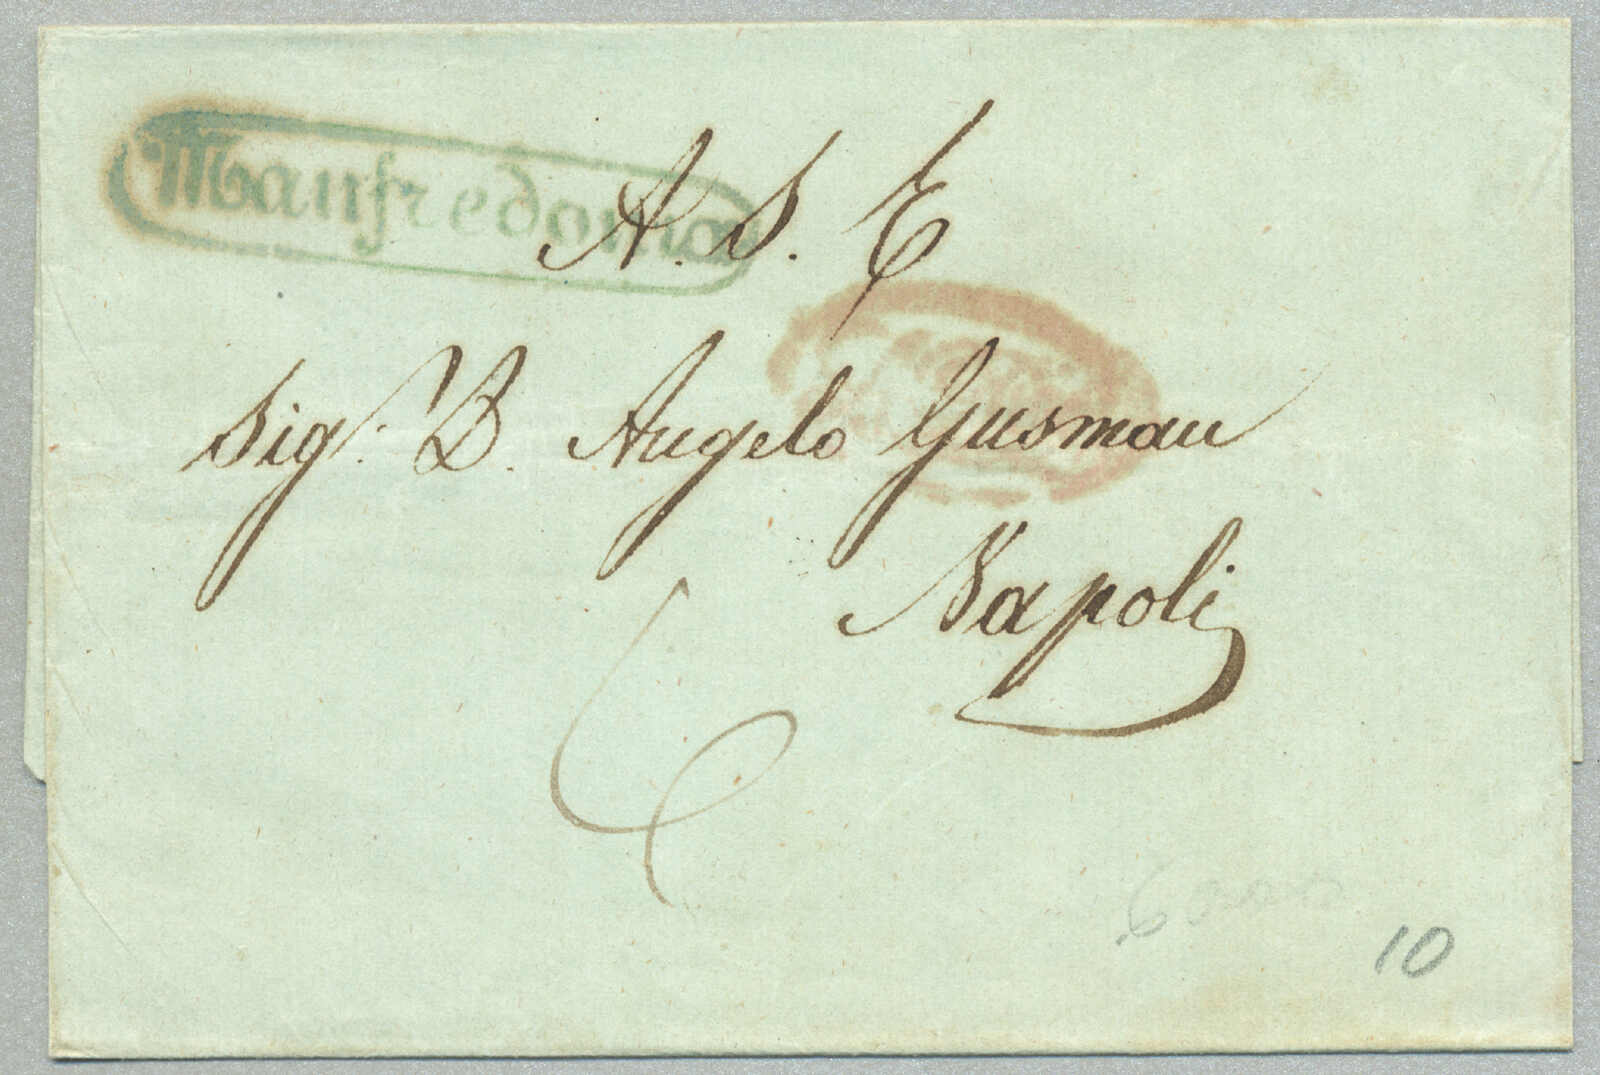 Manfredonia
A. S. E.
Sig.r D. Angelo Gusman
Napoli
10